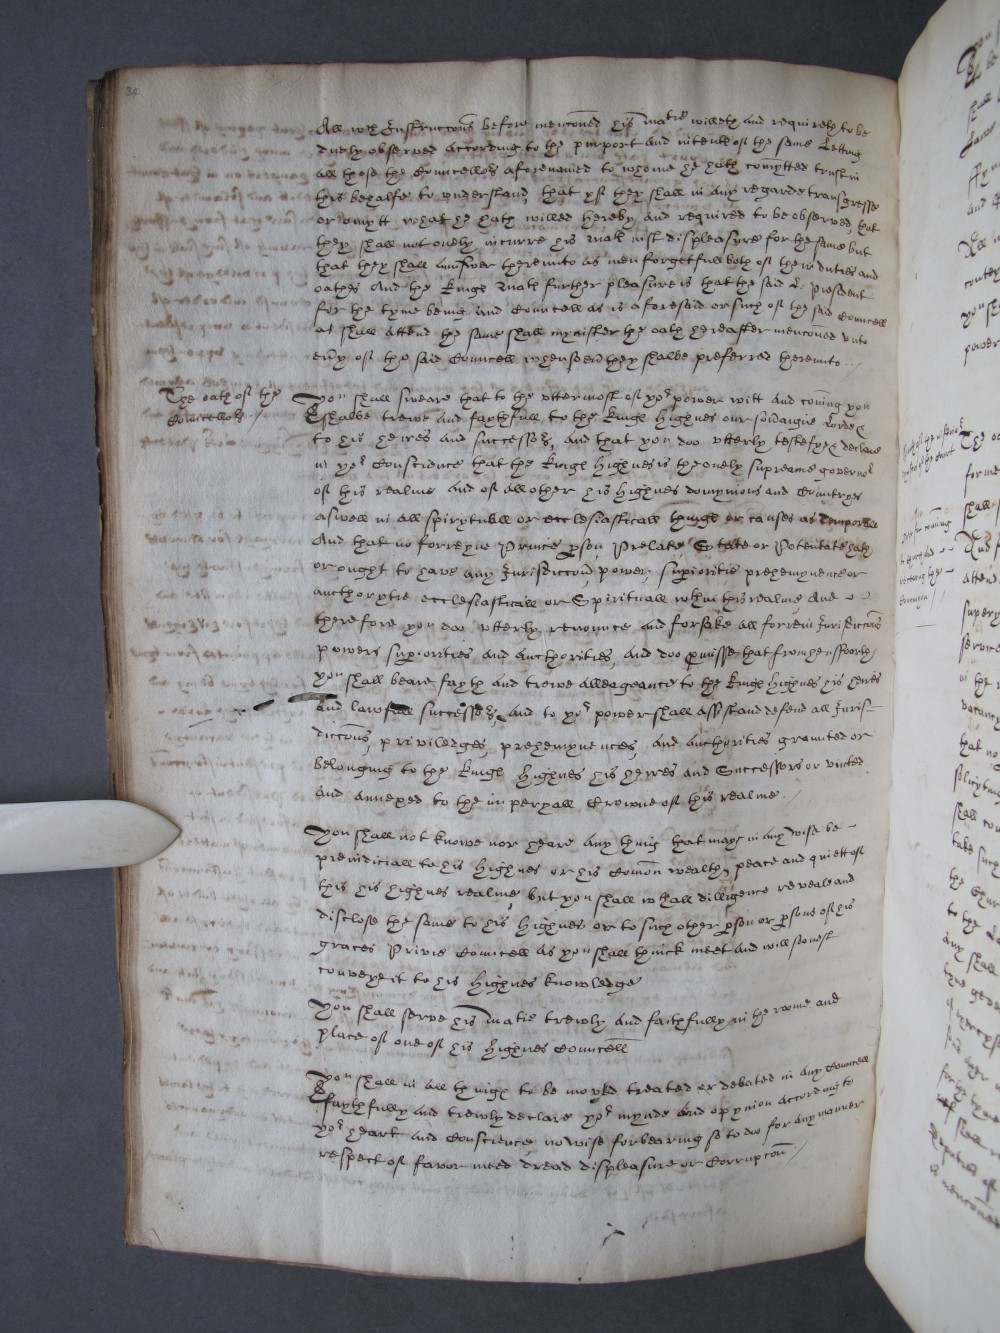 34
All wch Instruccons before menconed his Matie willeth and requireth to be
duely observed according to the purport and intent of the same Letting
all those the Councellors aforenamed to whome he hath comytted trust in
this behalfe to understand, that yf they shall in any regarde transgresse
or omytt what he hath willed hereby, and required to be observed, that
they shall not onely incurre his Maties iust displeasure for the same but
that they shall answer thereunto as men forgetfull both of their duties and
oathes And the Kings Maties further pleasure is that the said L. President
for the tyme being and Councell as is aforesaid or such of the said Councell
as shall attend the same shall mynister the oath hereafter menconed unto
every of the said Councell whensoever they shalbe preferred thereunto
The oath of the
Councellors /
You shall sweare that to the uttermost of yor power witt and coning you
shalbe trewe and faythfull to the Kings Highnes our Soveraigne Lorde &
to his heires and successors, and that you doo utterly testefye & declare
in yor Conscience that the Kings Highnes is the onely supreame governor
of this realme and of all other his highnes domynions and Countryes
aswell in all spirytuall or ecclesiasticall things or causes as temporall
And that no forreyne Prince person Prelate State or Potentate hath
or ought to have any Jurisdiccon power, superioritie prehemynence or
authorytie ecclesiasticall or Spirituall wthin this realme And
therefore you doo utterly renounce and forsake all forrein Jurisdiccons
powers superiorities and authorities, and doo promisse that from hensfoorth
you shall beare fayth and trewe alleageance to the Kings highnes his heires
and lawfull successors, and to yor power shall assist and defend all Juris-
diccons, priviledges, prehemynences, and authorities graunted or
belonging to the Kings Highnes his heires and Successors or united
and annexed to the imperyall Crowne of this realme.
You shall not knowe nor heare any thing that maye in any wise be
preiudiciall to his Highnes or his Comon wealth, peace and quiett of
this his highnes realme but you shall wth all dilligence reveale and
disclose the same to his Highnes or to such other person or persons of his
graces Privie Councell as you shall thinck meet and will sonest
convey it to his Highnes knowledge
You shall serve his Matie trewly and faithfully in the roome and
place of one of his Highnes Councell
You shall in all things to be moved treated or debated in any Councell
faythfully and trewly declare yor mynde and opynion according to
yor heart and Conscience no wise forbearing so to doo for any manner
respect of favor meed dread displeasure or Corrupcon /